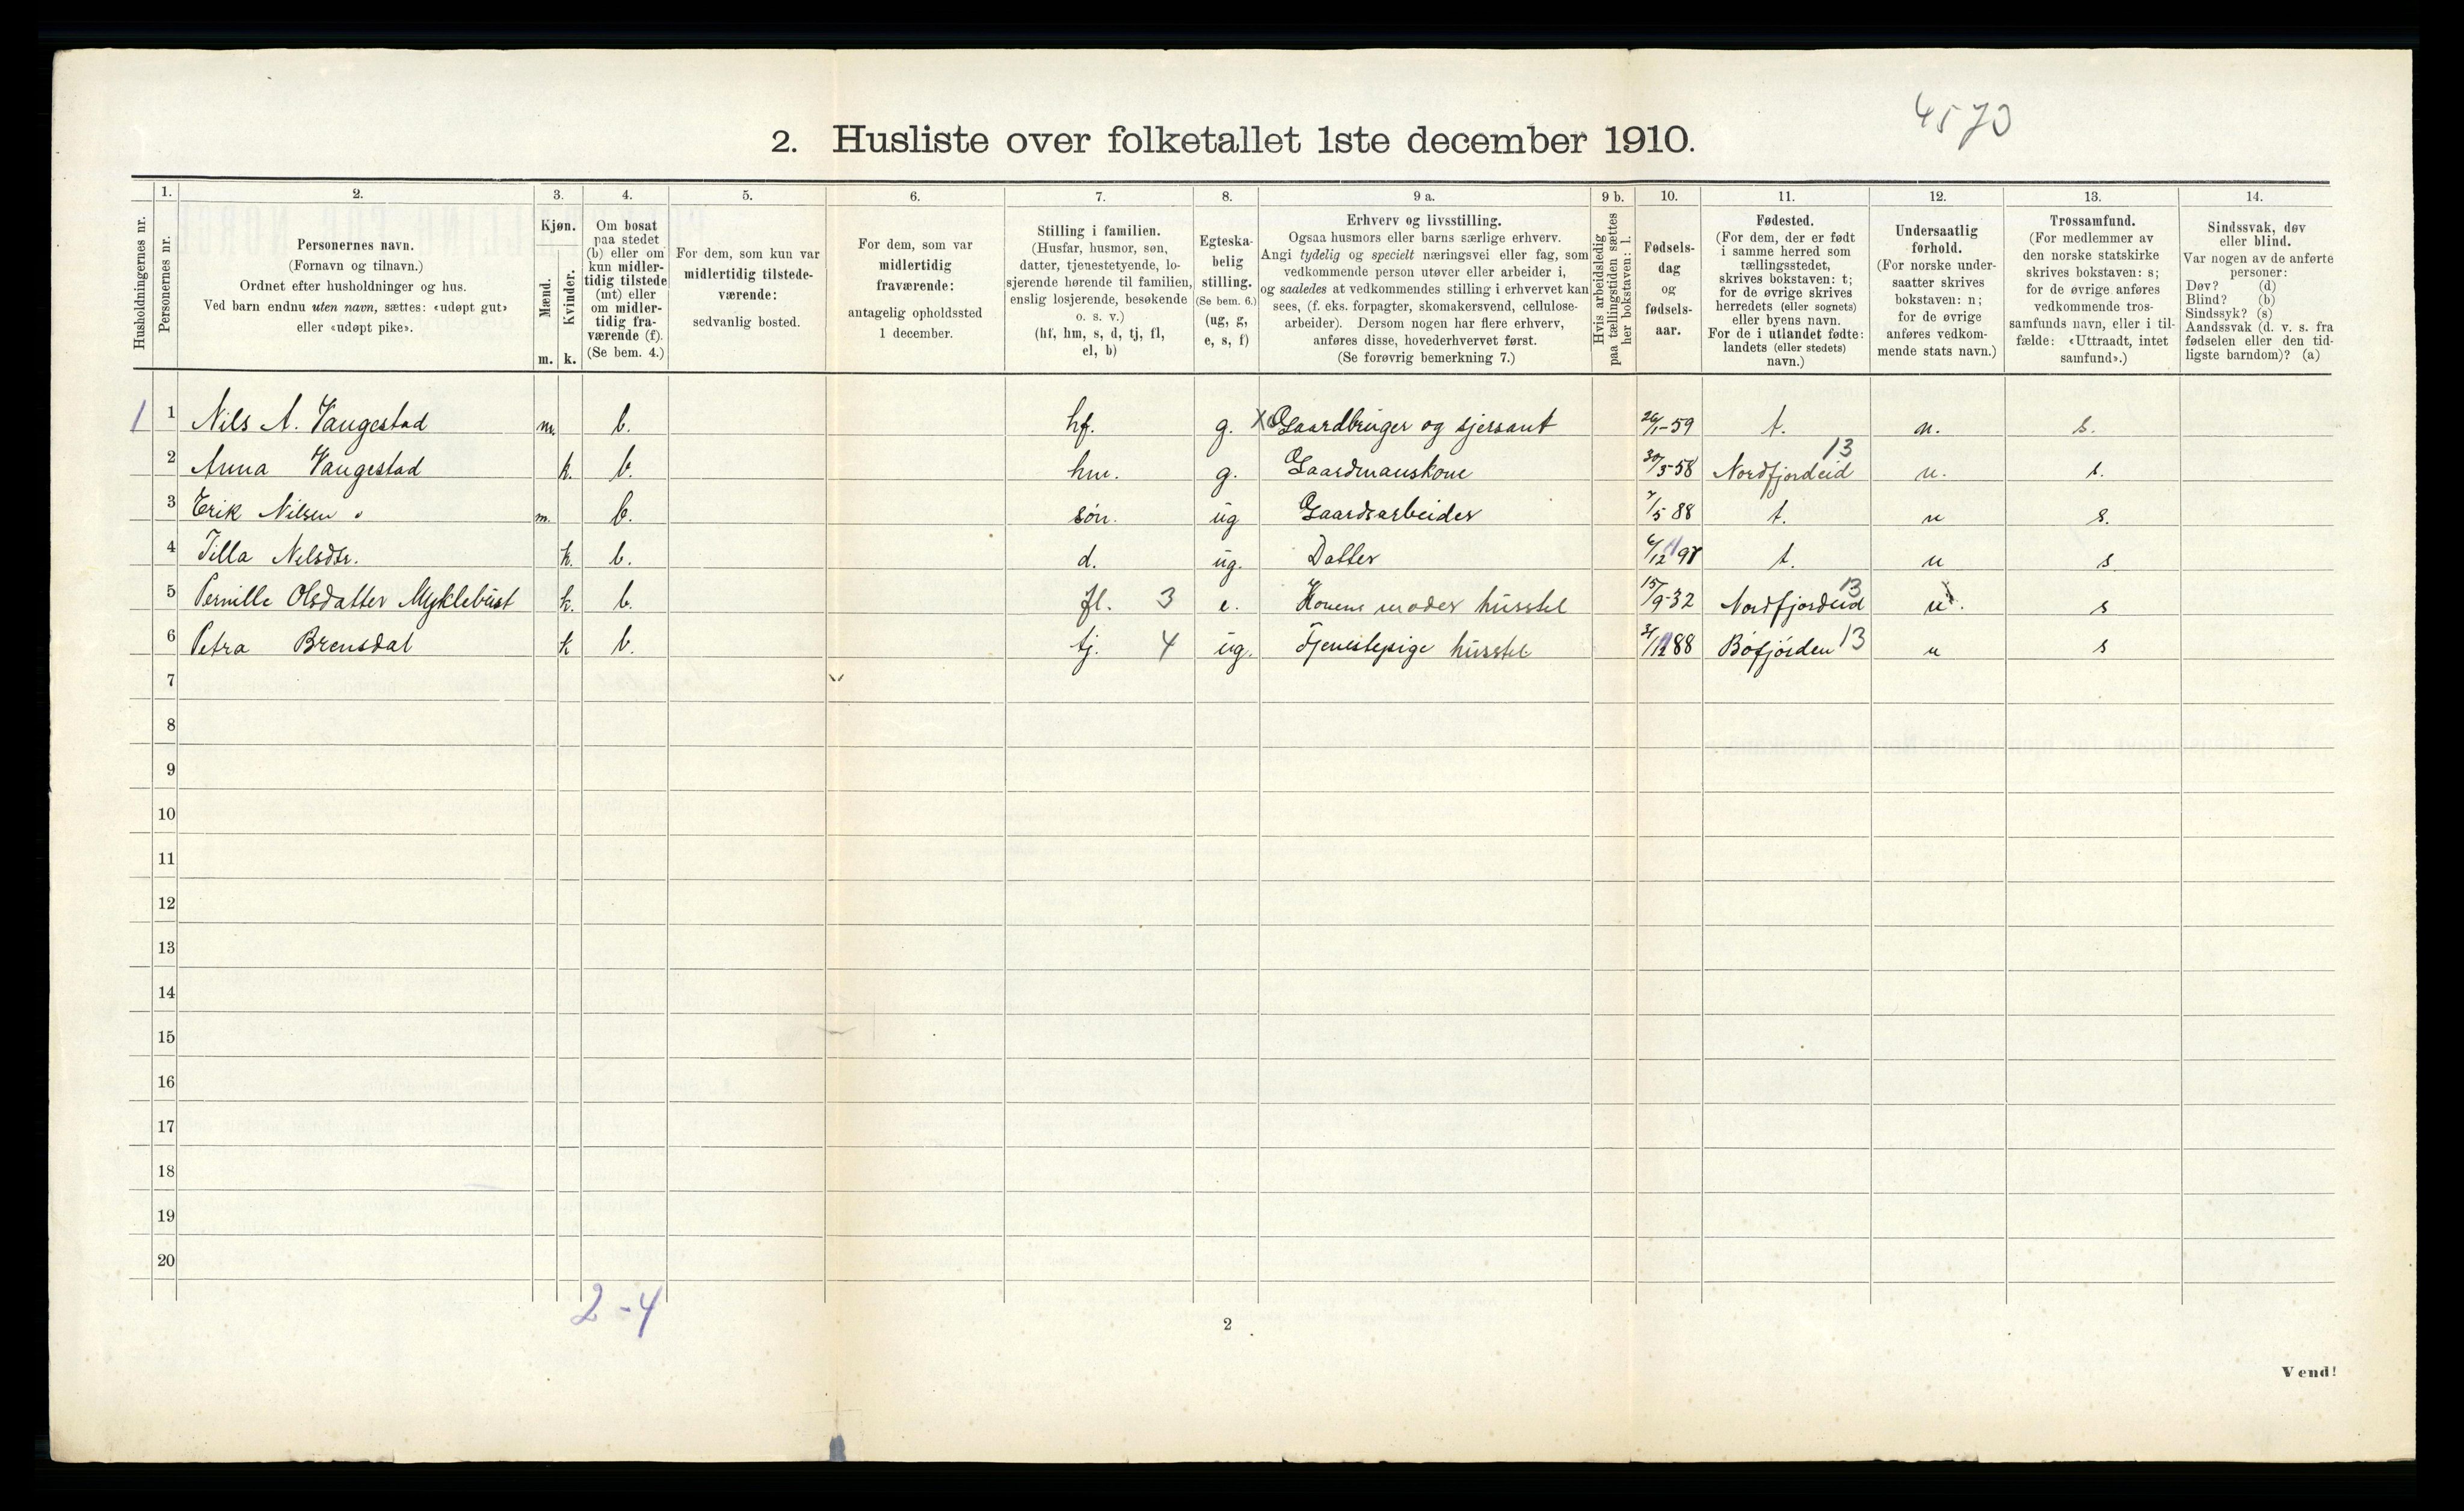 4573
2. Husliste over folketallet 1ste december 1910.
Husholdningernes nr.
1.
Personernes nr.
2.
Personernes navn.
(Fornavn og tilnavn.)
Ordnet efter husholdninger og hus.
Ved barn endnu uten navn, sættes: «udøpt gut»
eller «udøpt pike».
3.
Kjøn.
Mænd.
Kvinder.
m. k.
4.
Om bosat
paa stedet
(b) eller om
kun midler-
tidig tilstede
(mt) eller
om midler-
tidig fra-
værende (f).
(Se bem. 4.)
5.
For dem, som kun var
midlertidig tilstede-
værende:
sedvanlig bosted.
6.
For dem, som var
midlertidig
fraværende:
antagelig opholdssted
1 december.
7.
Stilling i familien.
(Husfar, husmor, søn,
datter, tjenestetyende, lo-
sjerende hørende til familien,
enslig losjerende, besøkende
o. s. v.)
(hf, hm, s, d, tj, fl,
el, b)
8.
Egteska-
belig
stilling.
(Se bem. 6.)
(ug, g,
e, s, f)
9 a.
Erhverv og livsstilling.
Ogsaa husmors eller barns særlige erhverv.
Angi tydelig og specielt næringsvei eller fag, som
vedkommende person utøver eller arbeider i,
og saaledes at vedkommendes stilling i erhvervet kan
sees, (f. eks. forpagter, skomakersvend, cellulose-
arbeider). Dersom nogen har flere erhverv,
anføres disse, hovederhvervet først.
(Se forøvrig bemerkning 7.)
9 b.
Hvis arbeidsledig
paa tællingstiden sættes
her bokstaven: l.
10.
Fødsels-
dag
og
fødsels-
aar.
11.
Fødested.
(For dem, der er født
i samme herred som
tællingsstedet,
skrives bokstaven: t;
for de øvrige skrives
herredets (eller sognets)
eller byens navn.
For de i utlandet fødte:
landets (eller stedets)
navn.)
12.
Undersaatlig
forhold.
(For norske under-
saatter skrives
bokstaven: n;
for de øvrige
anføres vedkom-
mende stats navn.)
13.
Trossamfund.
(For medlemmer av
den norske statskirke
skrives bokstaven: s;
for de øvrige anføres
vedkommende tros-
samfunds navn, eller i til-
fælde: «Uttraadt, intet
samfund».)
14.
Sindssvak, døv
eller blind.
Var nogen av de anførte
personer:
Døv? (d)
Blind? (b)
Sindssyk? (s)
Aandssvak (d. v. s. fra
fødselen eller den tid-
ligste barndom)? (a)
1 1 Nils A. Vangestad m. b. hf. g. X Gaardbruger og sjersant 26/1-59 t. n. s.
2 Anna Vangestad k. b. hm. g. Gaardmanskone 30/5-58 Nordfjordeid 13 n. s.
3 Erik Nilsen m. b. søn. ug Gaardsarbeider 7/5 88 t. n s.
4 Tilla Nilsdtr. k. b. d. ug. Datter t. n s
5 Pernille Olsdatter Myklebust k. b. fl. 3 e. Konens moder husstel 15/9-32 Nordfjordeid 13 n. s
6 Petra Brensdal k b. tj. 4 ug. Tjenestepige husstel Bøfjorden 13 n s
7
8
9
10
11
12
13
14
15
16
17
18
19
20
2-4
2
Vend!